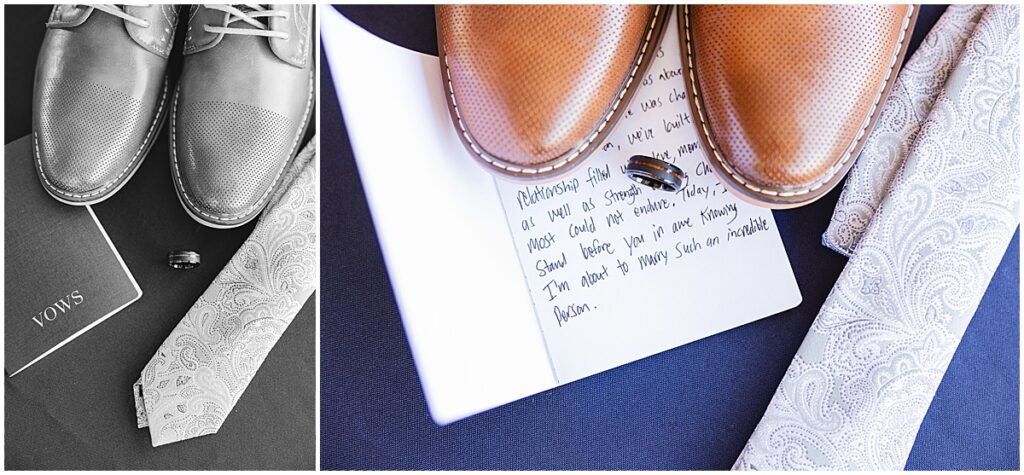 VOWS
as above
was
we've built
relationship filled
as well as strength
most could not endure. Today, I
Stand before you in awe knowing
I'm about to marry such an incredible
person.